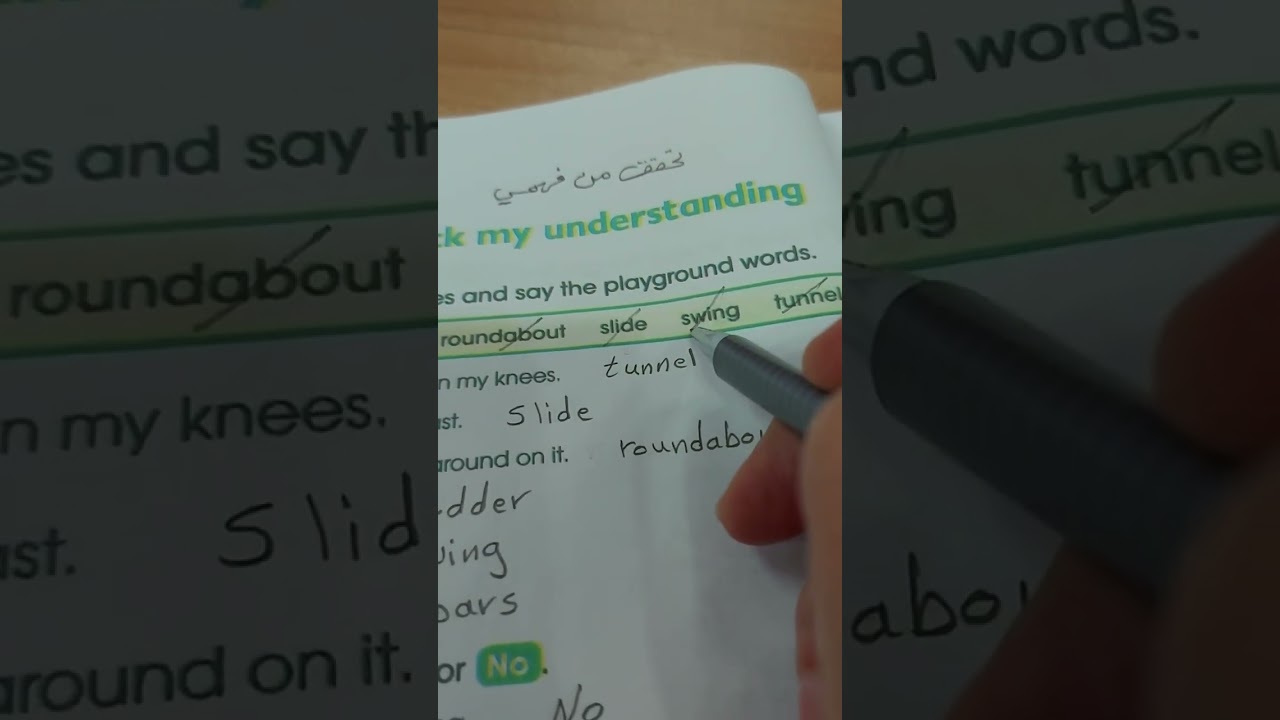 تحققت من فهمي
ck my understanding
es and say the playground words.
roundabout slide swing tunnel
n my knees. tunnel
ast. slide
around on it. roundabou
dder
wing
bars
or No.
No